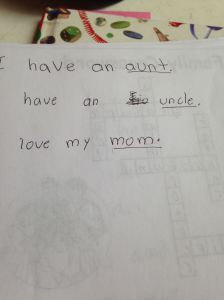 I have an aunt.
have an uncle.
love my mom.